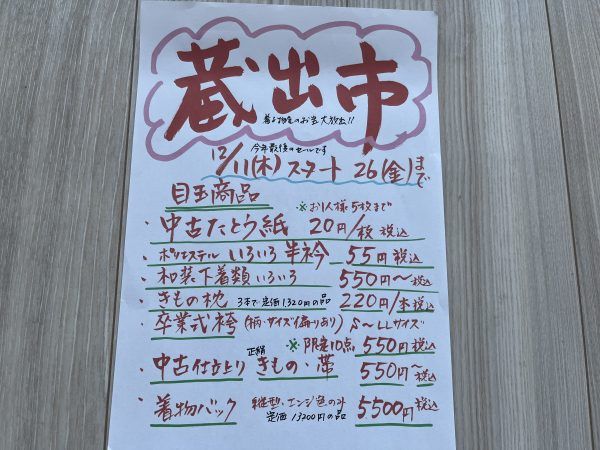 蔵出市
着る物屋のお宝大放出!!
今年最後のセールです
12/11(木)スタート 26(金)まで
目玉商品
※お1人様5枚まで
・中古たとう紙 20円/枚 税込
・ポリエステル いろいろ 半衿 55円 税込
・和装下着類 いろいろ 550円〜税込
・きもの枕 3本で定価1,320円の品 220円/本税込
・卒業式袴(柄・サイズ偏りあり)S〜LLサイズ
※限定10点 550円税込
・中古仕立上り 正絹 きもの・帯 550円〜税込
・着物バック 縦型、エンジ色のみ 5500円税込
定価13200円の品